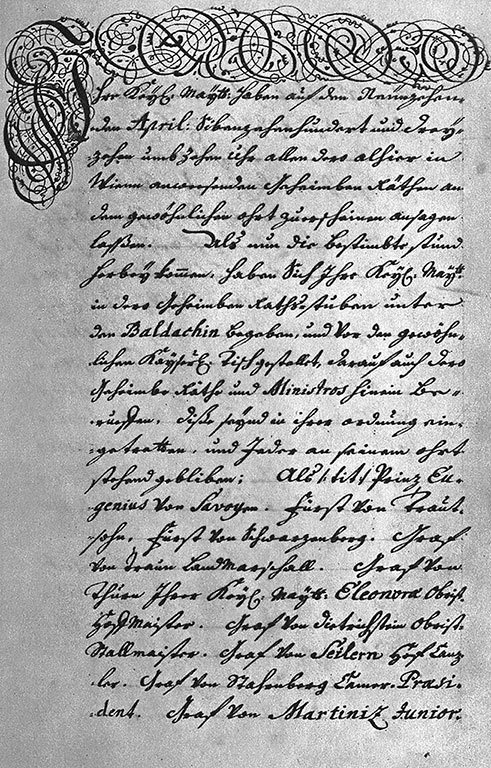 Ihre Kayl. Maytt. haben auf den Neünzehen-
den April: Sibenzehenhundert und drey-
zehen umb zehen uhr allen dero alhier in
Wienn anwesenden Geheimben Räthen an
dem gewöhnlichen ohrt zuerscheinen ansagen
lassen. Als nun die bestimbte stund
herbey kommen, haben Sich Ihre Kayl. Maytt.
in dero Geheimben Raths-stuben unter
den Baldachin begeben, und vor den gewöhn-
lichen Kayserl. Tisch gestellet, darauf auch dero
Geheimbe Räthe und Ministros hinein be-
rueffen, dise seynd in ihrer ordnung ein-
getretten, und Jeder an seinem ohrt
stehend gebliben; Als (: tit :) Prinz Eu-
genius von Savoyen. Fürst von Traut-
sohn. Fürst von Schwarzenberg. Graf
von Traun LandMarschall. Graf von
Thurn Ihrer Kayl. Maytt. Eleonoræ Obrist
HoffMaister. Graf von Dietrichstein Obrist-
Stallmaister. Graf von Seilern Hoff Canz-
ler. Graf von Stahrenberg Camer-Præsi-
dent. Graf von Martiniz Junior.